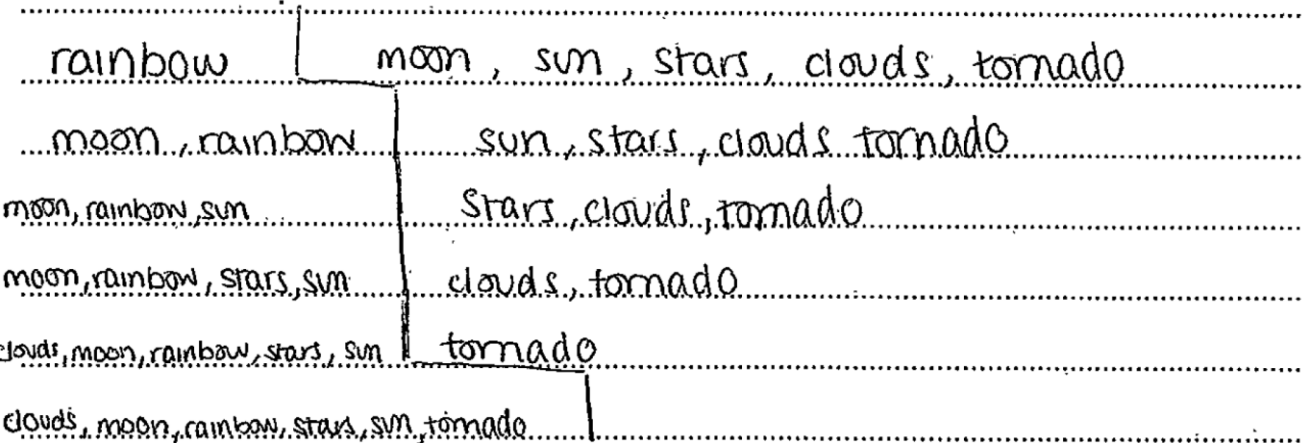 rainbow moon, sun, stars, clouds, tornado
moon, rainbow sun, stars, clouds tornado
moon, rainbow, sun stars, clouds, tornado
moon, rainbow, stars, sun clouds, tornado
clouds, moon, rainbow, stars, sun tornado
clouds, moon, rainbow, stars, sun, tornado